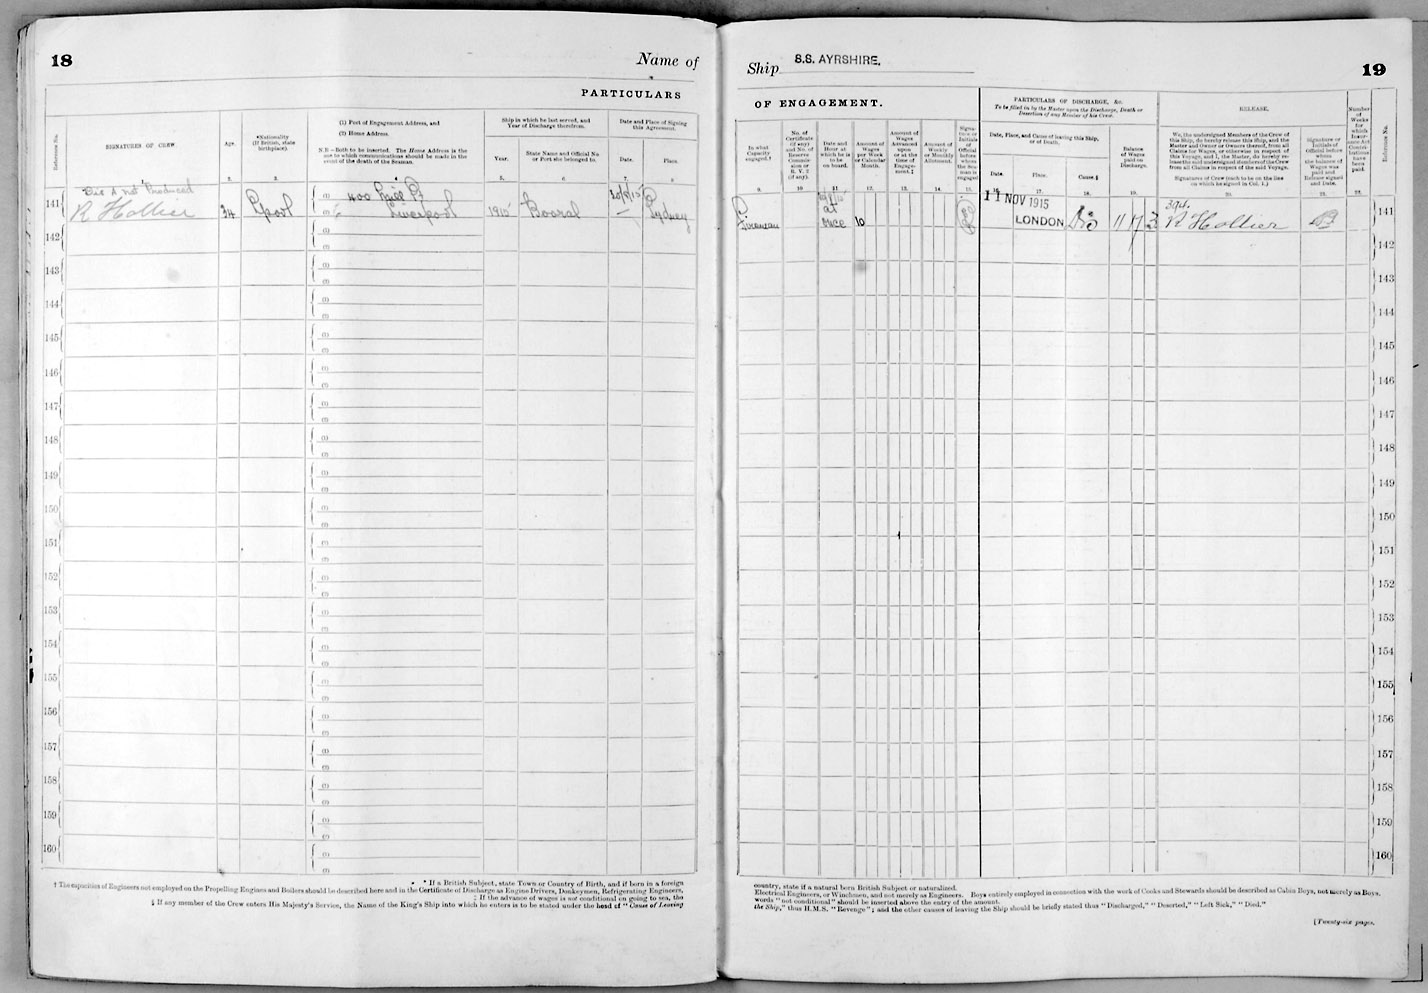 18
Name of
PARTICULARS
Reference No.
SIGNATURES OF CREW.
Age.
*Nationality
(If British, state
birthplace).
(1) Port of Engagement Address, and
(2) Home Address.
N.B.—Both to be inserted. The Home Address is the
one to which communications should be made in the
event of the death of the Seaman.
Ship in which he last served, and
Year of Discharge therefrom.
Year.
State Name and Official No.
or Port she belonged to.
Date and Place of Signing
this Agreement.
Date.
Place.
1. 2. 3. 4. 5. 6. 7. 8.
Dis A not Produced
141 R Hollier 34 Lpool (1) 400 Mill
(2) Liverpool 1915 Booral Sydney
142
143
144
145
146
147
148
149
150
151
152
153
154
155
156
157
158
159
160
* If a British Subject, state Town or Country of Birth, and if born in a foreign
† The capacities of Engineers not employed on the Propelling Engines and Boilers should be described here and in the Certificate of Discharge as Engine Drivers, Donkeymen, Refrigerating Engineers,
‡ If the advance of wages is not conditional on going to sea, the
§ If any member of the Crew enters His Majesty's Service, the Name of the King's Ship into which he enters is to be stated under the head of "Cause of Leaving
Ship S.S. AYRSHIRE.
19
OF ENGAGEMENT.
In what
Capacity
engaged.†
No. of
Certificate
(if any)
and No. of
Reserve
Commis-
sion or
R. V. 2
(if any).
Date and
Hour at
which he is
to be
on board.
Amount of
Wages
per Week
or Calendar
Month.
Amount of
Wages
Advanced
upon
or at the
time of
Engage-
ment.‡
Amount of
Weekly
or Monthly
Allotment.
Signa-
ture or
Initials
of
Official
before
whom
the Sea-
man is
engaged
PARTICULARS OF DISCHARGE, &c.
To be filled in by the Master upon the Discharge, Death or
Desertion of any Member of his Crew.
Date, Place, and Cause of leaving this Ship,
or of Death.
Date.
Place.
Cause.§
Balance
of Wages
paid on
Discharge.
RELEASE.
We, the undersigned Members of the Crew of
this Ship, do hereby release this Ship, and the
Master and Owner or Owners thereof, from all
Claims for Wages, or otherwise in respect of
this Voyage, and I, the Master, do hereby re-
lease the said undersigned members of the Crew
from all Claims in respect of the said Voyage.
Signatures of Crew (each to be on the line
on which he signed in Col. 1.)
Signature or
Initials of
Official before
whom
the balance of
Wages was
paid and
Release signed
and Date.
Number
of
Weeks
for
which
Insur-
ance Act
Contri-
butions
have
been
paid.
Reference No.
9. 10 11. 12. 13. 14. 15. 16. 17. 18. 19. 20. 21. 22.
Fireman at once 10 11 NOV 1915 LONDON Dis 11 17 3 R Hollier 141
142
143
144
145
146
147
148
149
150
151
152
153
154
155
156
157
158
159
160
country, state if a natural born British Subject or naturalized.
Electrical Engineers, or Winchmen, and not merely as Engineers. Boys entirely employed in connection with the work of Cooks and Stewards should be described as Cabin Boys, not merely as Boys.
words "not conditional" should be inserted above the entry of the amount.
the Ship," thus H.M.S. "Revenge"; and the other causes of leaving the Ship should be briefly stated thus "Discharged," "Deserted," "Left Sick," "Died."
[Twenty-six pages.